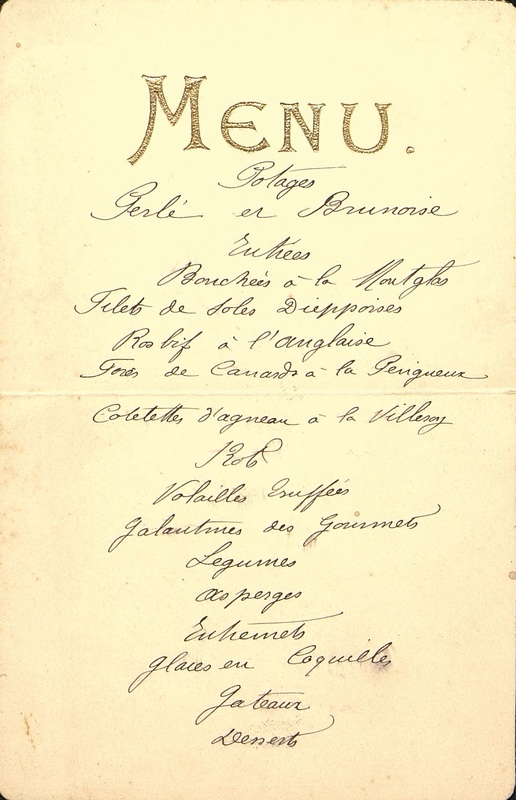 MENU.
Potages
Perlé et Brunoise
Entrées
Bouchées à la Montglas
Filets de Soles Dieppoises
Rosbif à l'anglaise
Foies de Canards à la Perigueux
Cotelettes d'agneau à la Villeroy
Rob
Volailles truffées
Galantines des Gourmets
Legumes
Asperges
Entremets
Glaces en Coquilles
Gateaux
Desserts